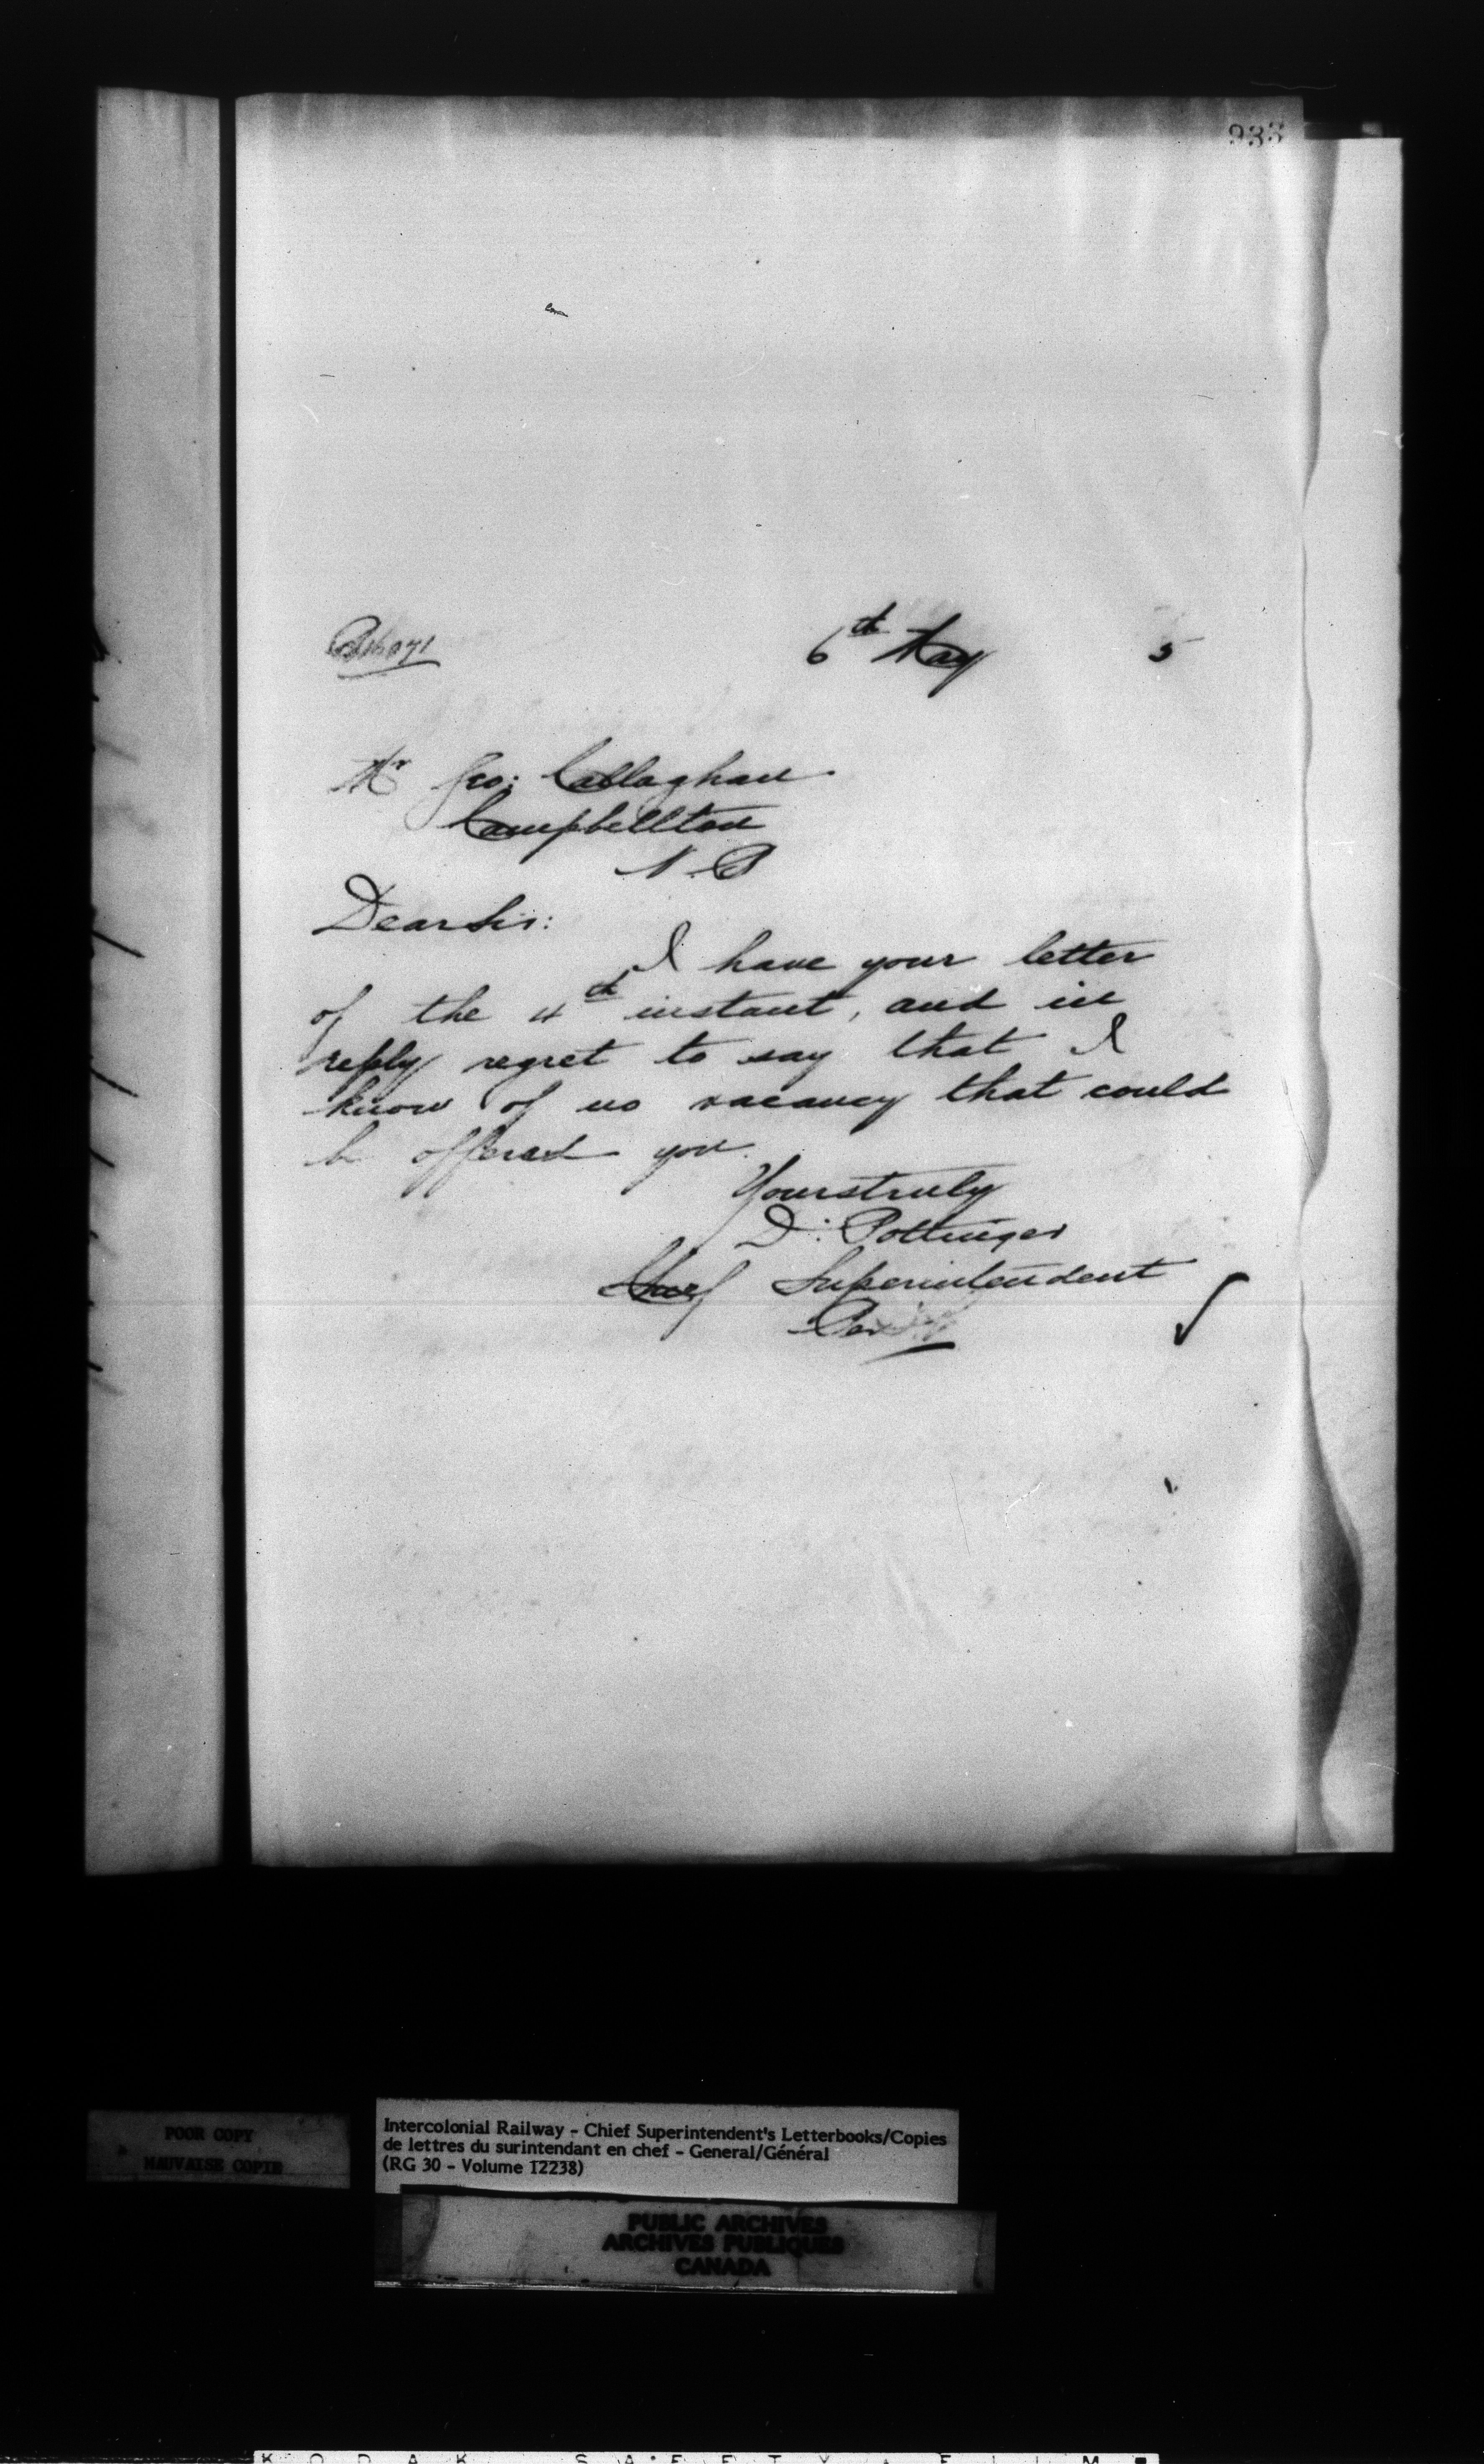 933
6th May 5
Mr Geo: Callaghan
Campbellton
N.B
Dear Sir:
I have your letter
of the 4th instant, and in
reply regret to say that I
know of no vacancy that could
be offered you.
Yours truly
D: Pottinger
Chief Superintendent
Per
POOR COPY
MAUVAISE COPIE
Intercolonial Railway - Chief Superintendent's Letterbooks/Copies
de lettres du surintendant en chef - General/Général
(RG 30 - Volume 12238)
PUBLIC ARCHIVES
ARCHIVES PUBLIQUES
CANADA
KODAK SAFETY FILM